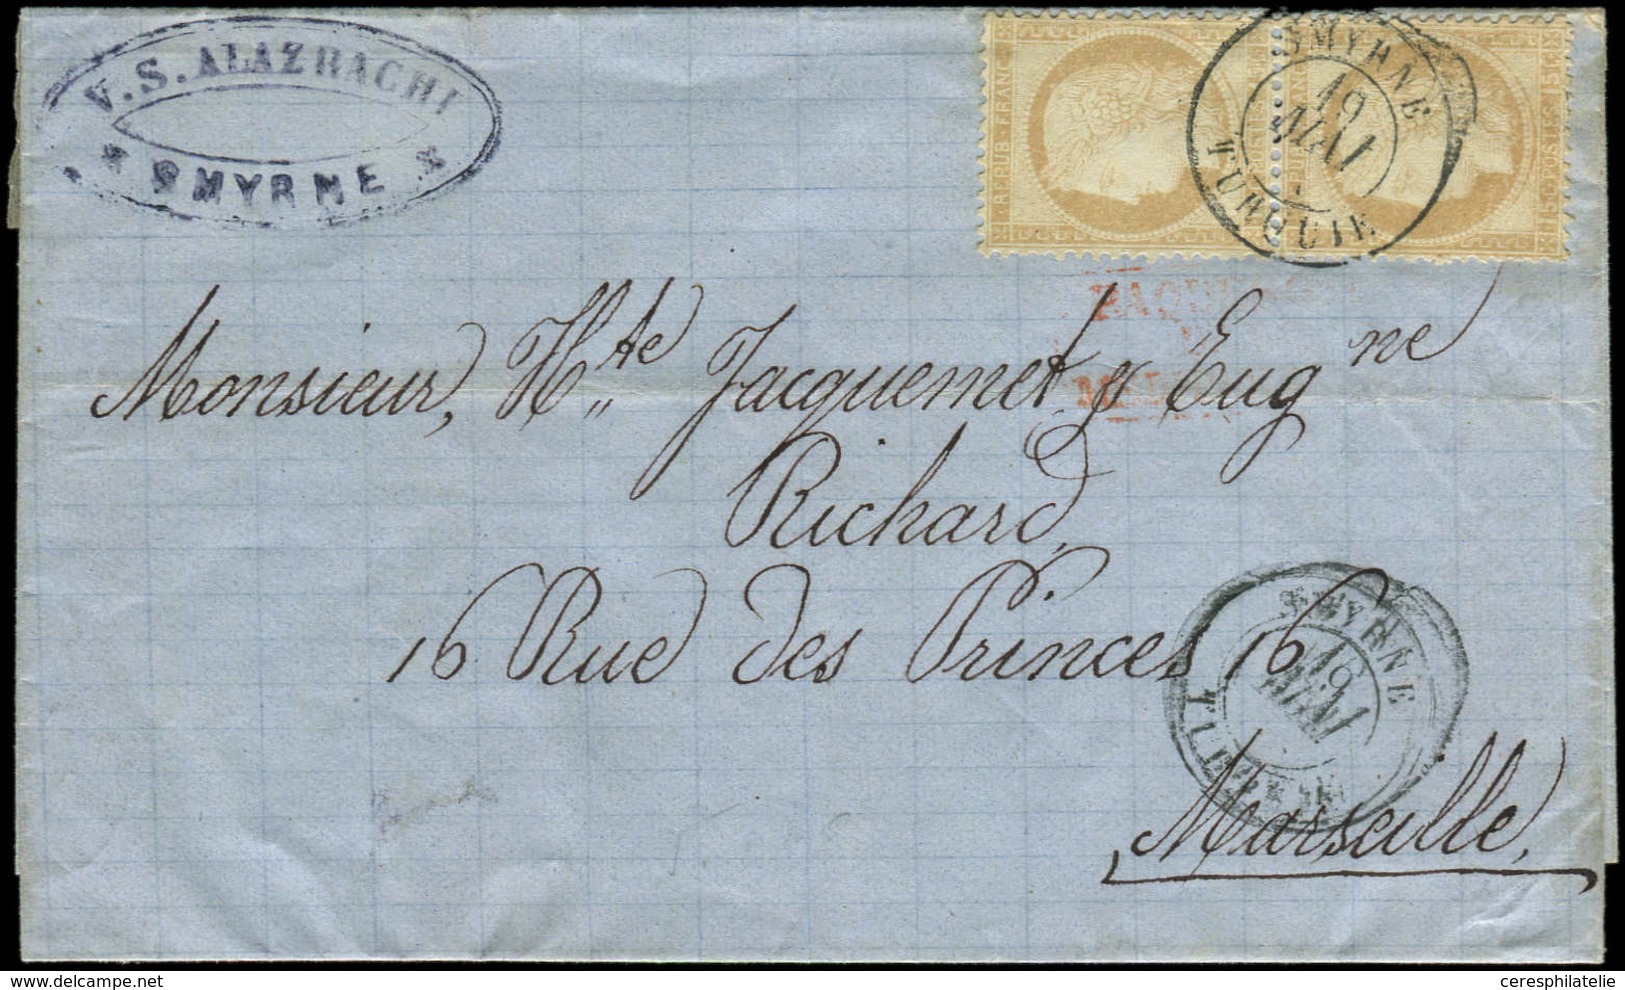 V. S. ALAZRACHI
* SMYRNE *
REPUB. FRANC.
15 c. POSTES 15 c.
SMYRNE
19
MAI
TURQUIE
Monsieur, Hte Jacquemet & Eugne
Richard,
16 Rue des Princes 16
SMYRNE
19
MAI
Marseille,
ceresphilatelie